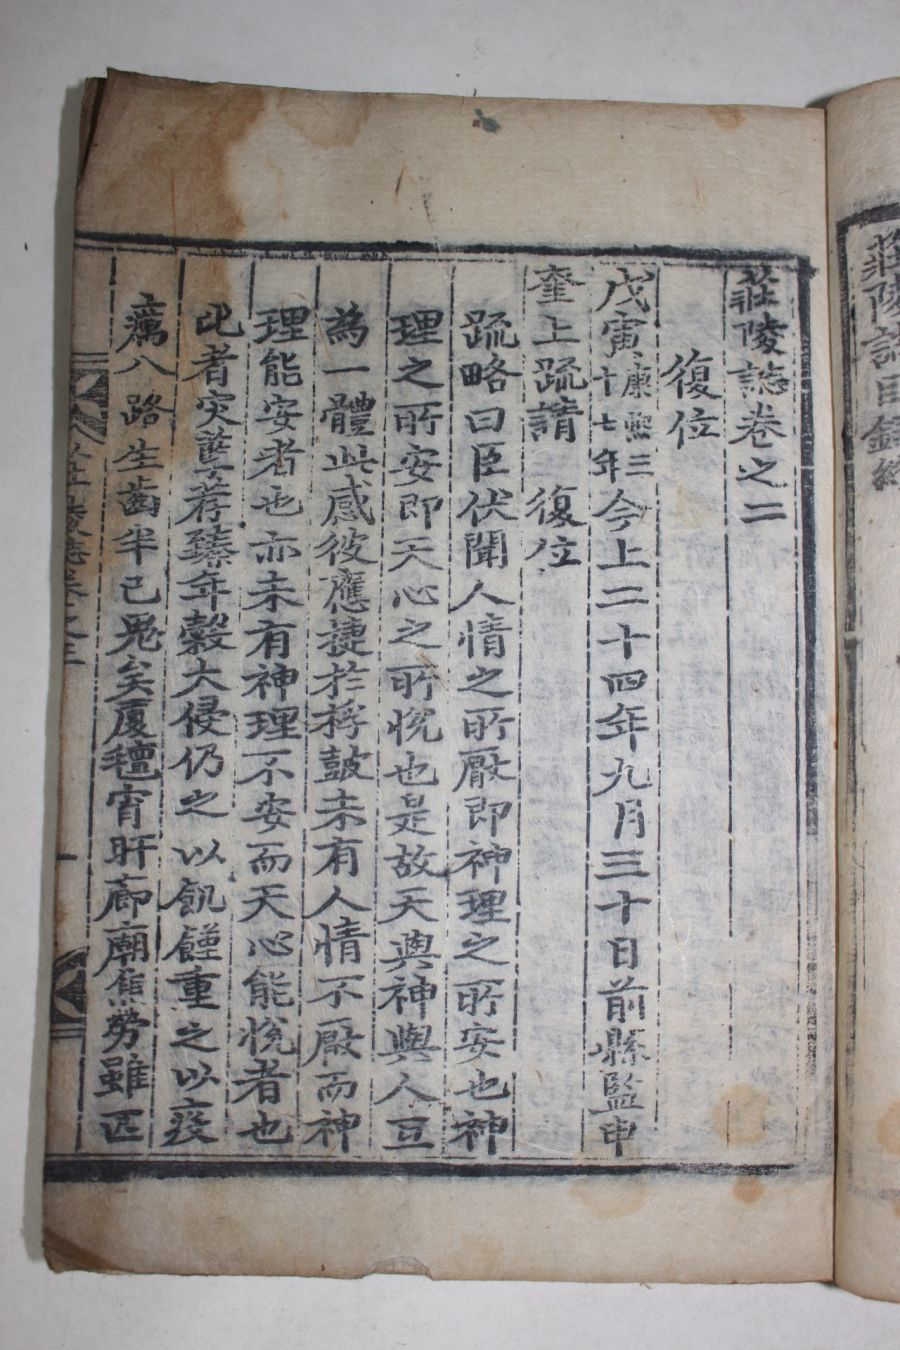 莊陵誌卷之二
復位
戊寅康熙三十七年今上二十四年九月三十日前縣監申
奎上疏請 復位
疏略曰臣伏聞人情之所厭即神理之所安也神
理之所安即天心之所悅也是故天與神與人亙
為一體此感彼應捷於桴鼓未有人情不厭而神
理能安者也亦未有神理不安而天心能悅者也
比者灾孽荐臻年穀大侵仍之以飢饉重之以疫
癘八路生齒半已鬼矣厦氊宵旰廊廟焦勞雖匹
莊陵誌卷之二
一
莊陵誌目錄終